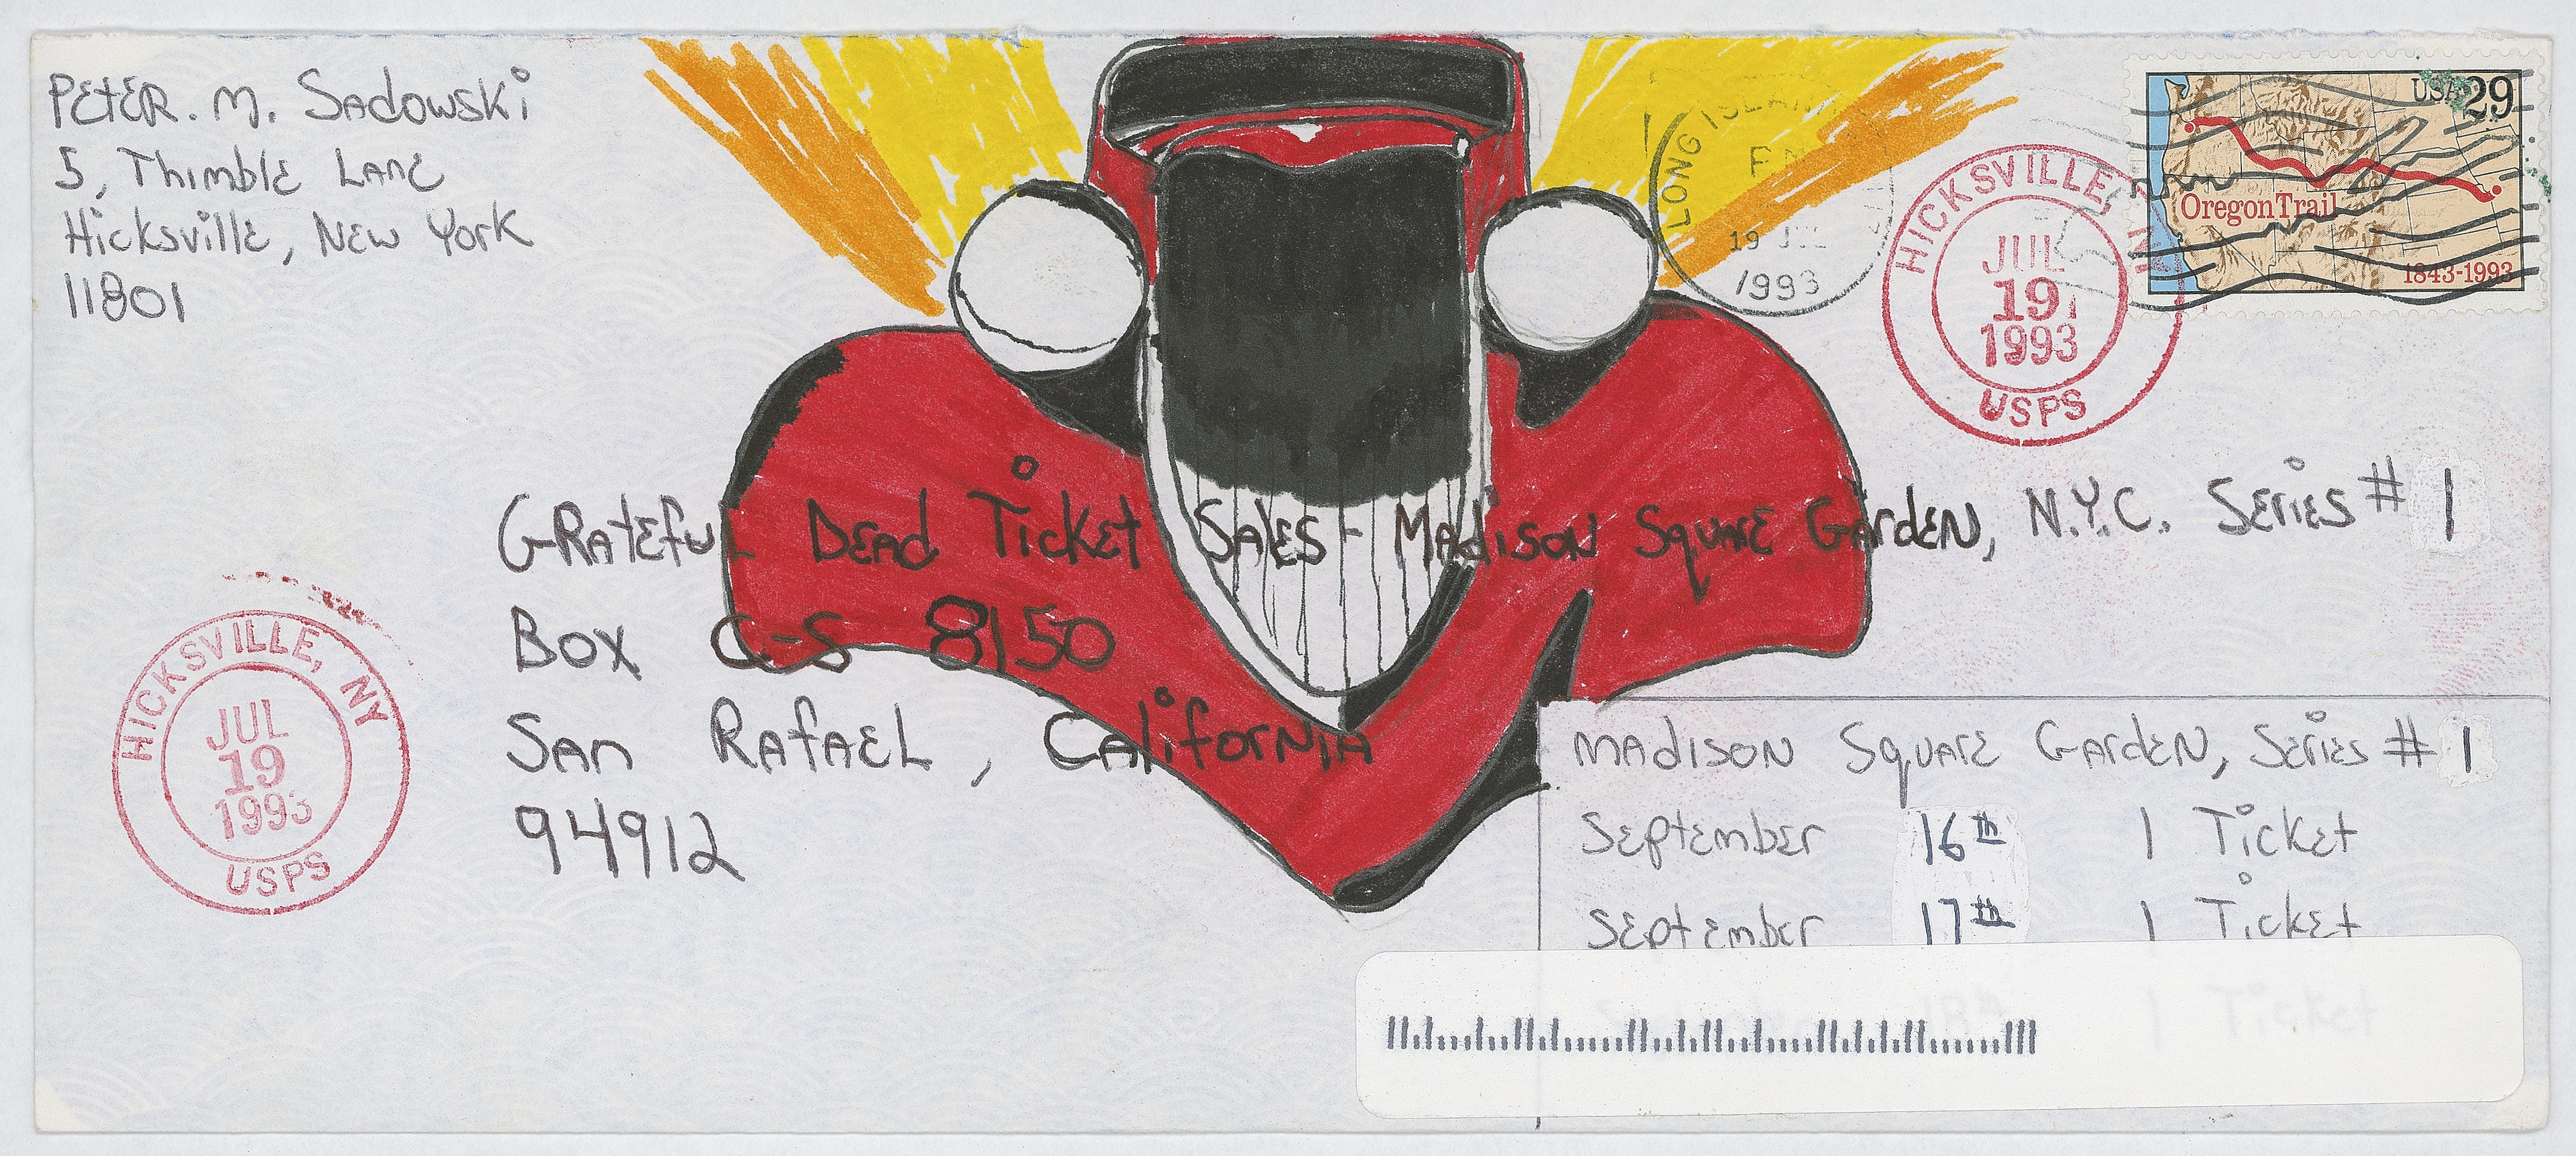 PEtER. M. Sadowski
5, Thimble Lane
Hicksville, New York
11801
LONG ISLAN
PM
19 JUL
1993
HICKSVILLE, N
JUL
19
1993
USPS
USA 29
Oregon Trail
1843-1993
Grateful Dead Ticket Sales - Madison Square Garden, N.Y.C. Series # 1
Box C-S 8150
San Rafael, California
94912
HICKSVILLE, NY
JUL
19
1993
USPS
Madison Square Garden, Series # 1
September 16th 1 Ticket
September 17th 1 Ticket